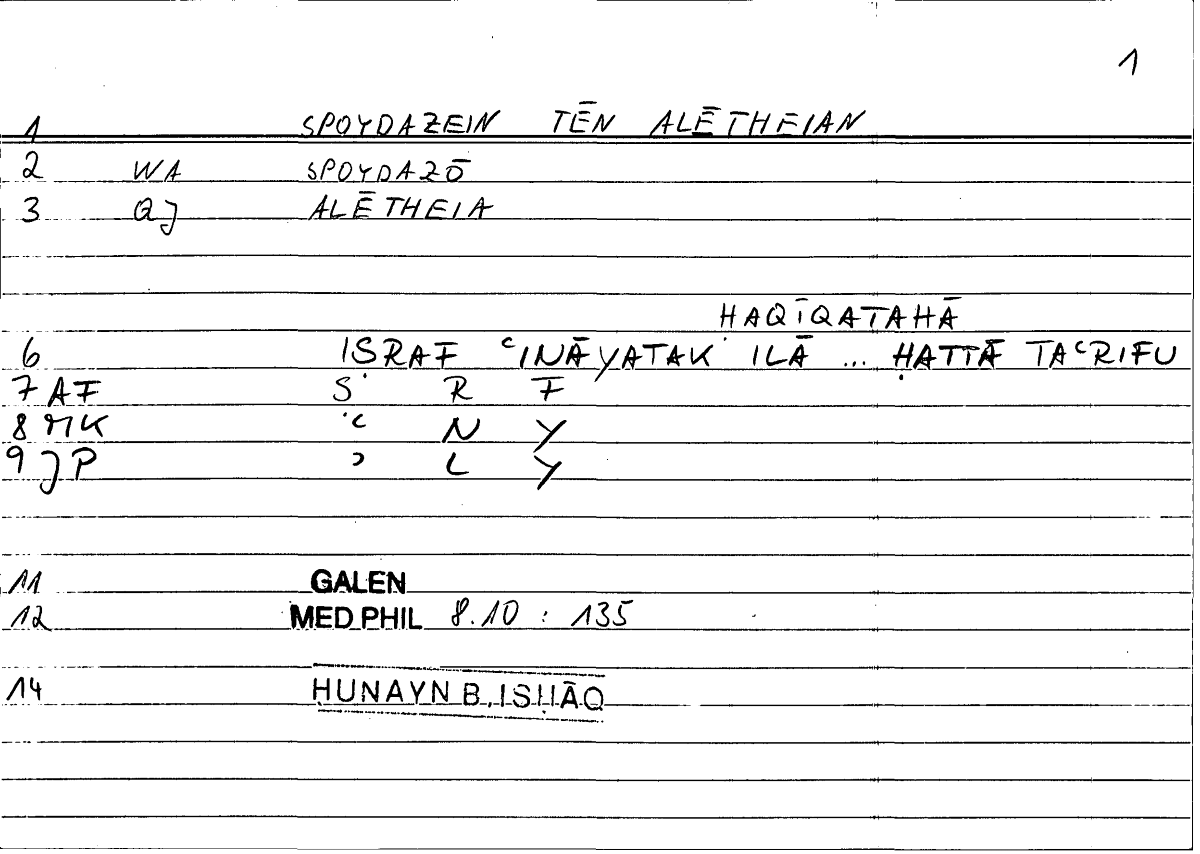 1
1 SPOYDAZEIN TĒN ALĒTHEIAN
2 WA SPOYDAZŌ
3 QJ ALĒTHEIA
HAQĪQATAHĀ
6 IṢRAF ʿINĀYATAK ILĀ ... ḤATTĀ TAʿRIFU
7 AF Ṣ R F
8 MK ʿ N Y
9 JP ʾ L Y
11 GALEN
12 MED PHIL 8.10 : 135
14 ḤUNAYN B. ISḤĀQ